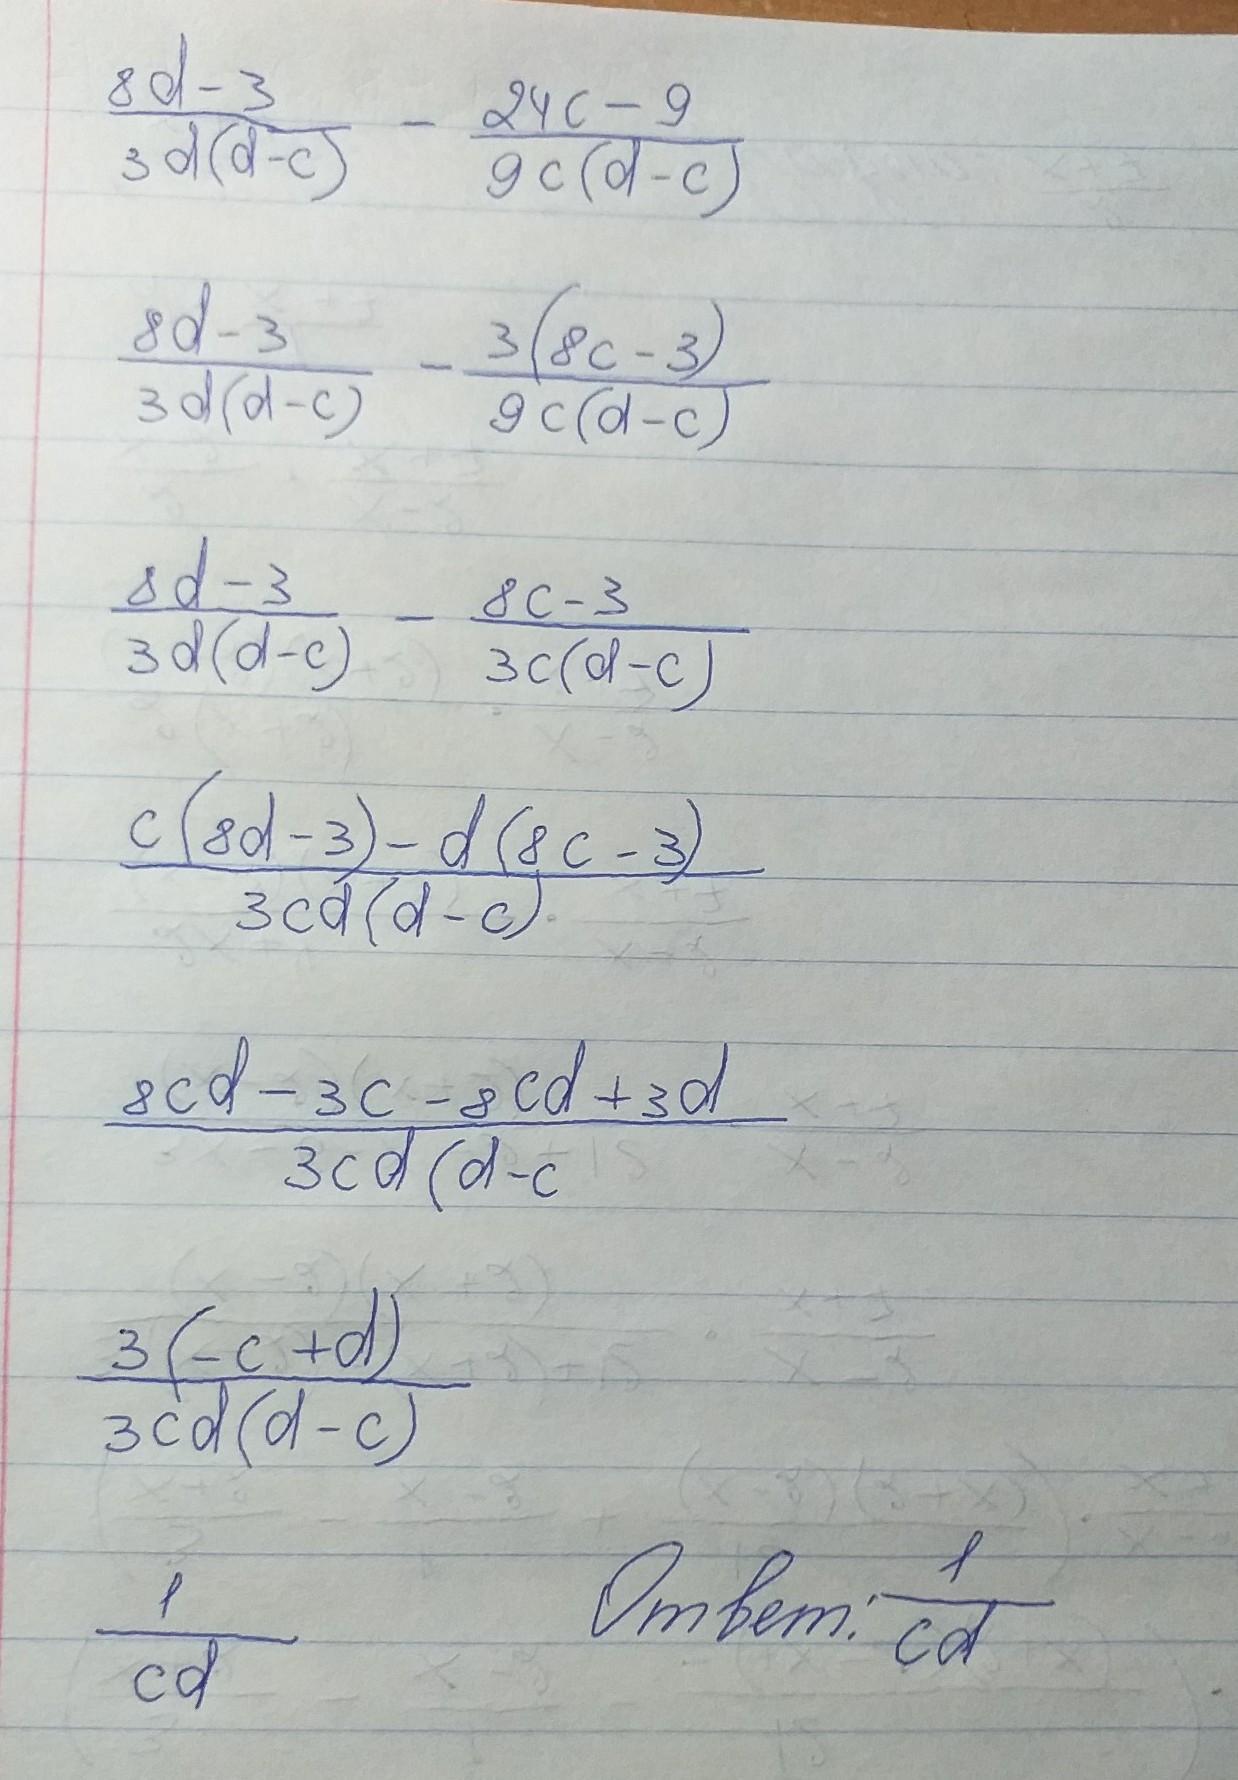 8d-3 / 3d(d-c) - 24c-9 / 9c(d-c)
8d-3 / 3d(d-c) - 3(8c-3) / 9c(d-c)
8d-3 / 3d(d-c) - 8c-3 / 3c(d-c)
c(8d-3)-d(8c-3) / 3cd(d-c)
8cd-3c-8cd+3d / 3cd(d-c
3(-c+d) / 3cd(d-c)
1 / cd Ответ: 1 / cd